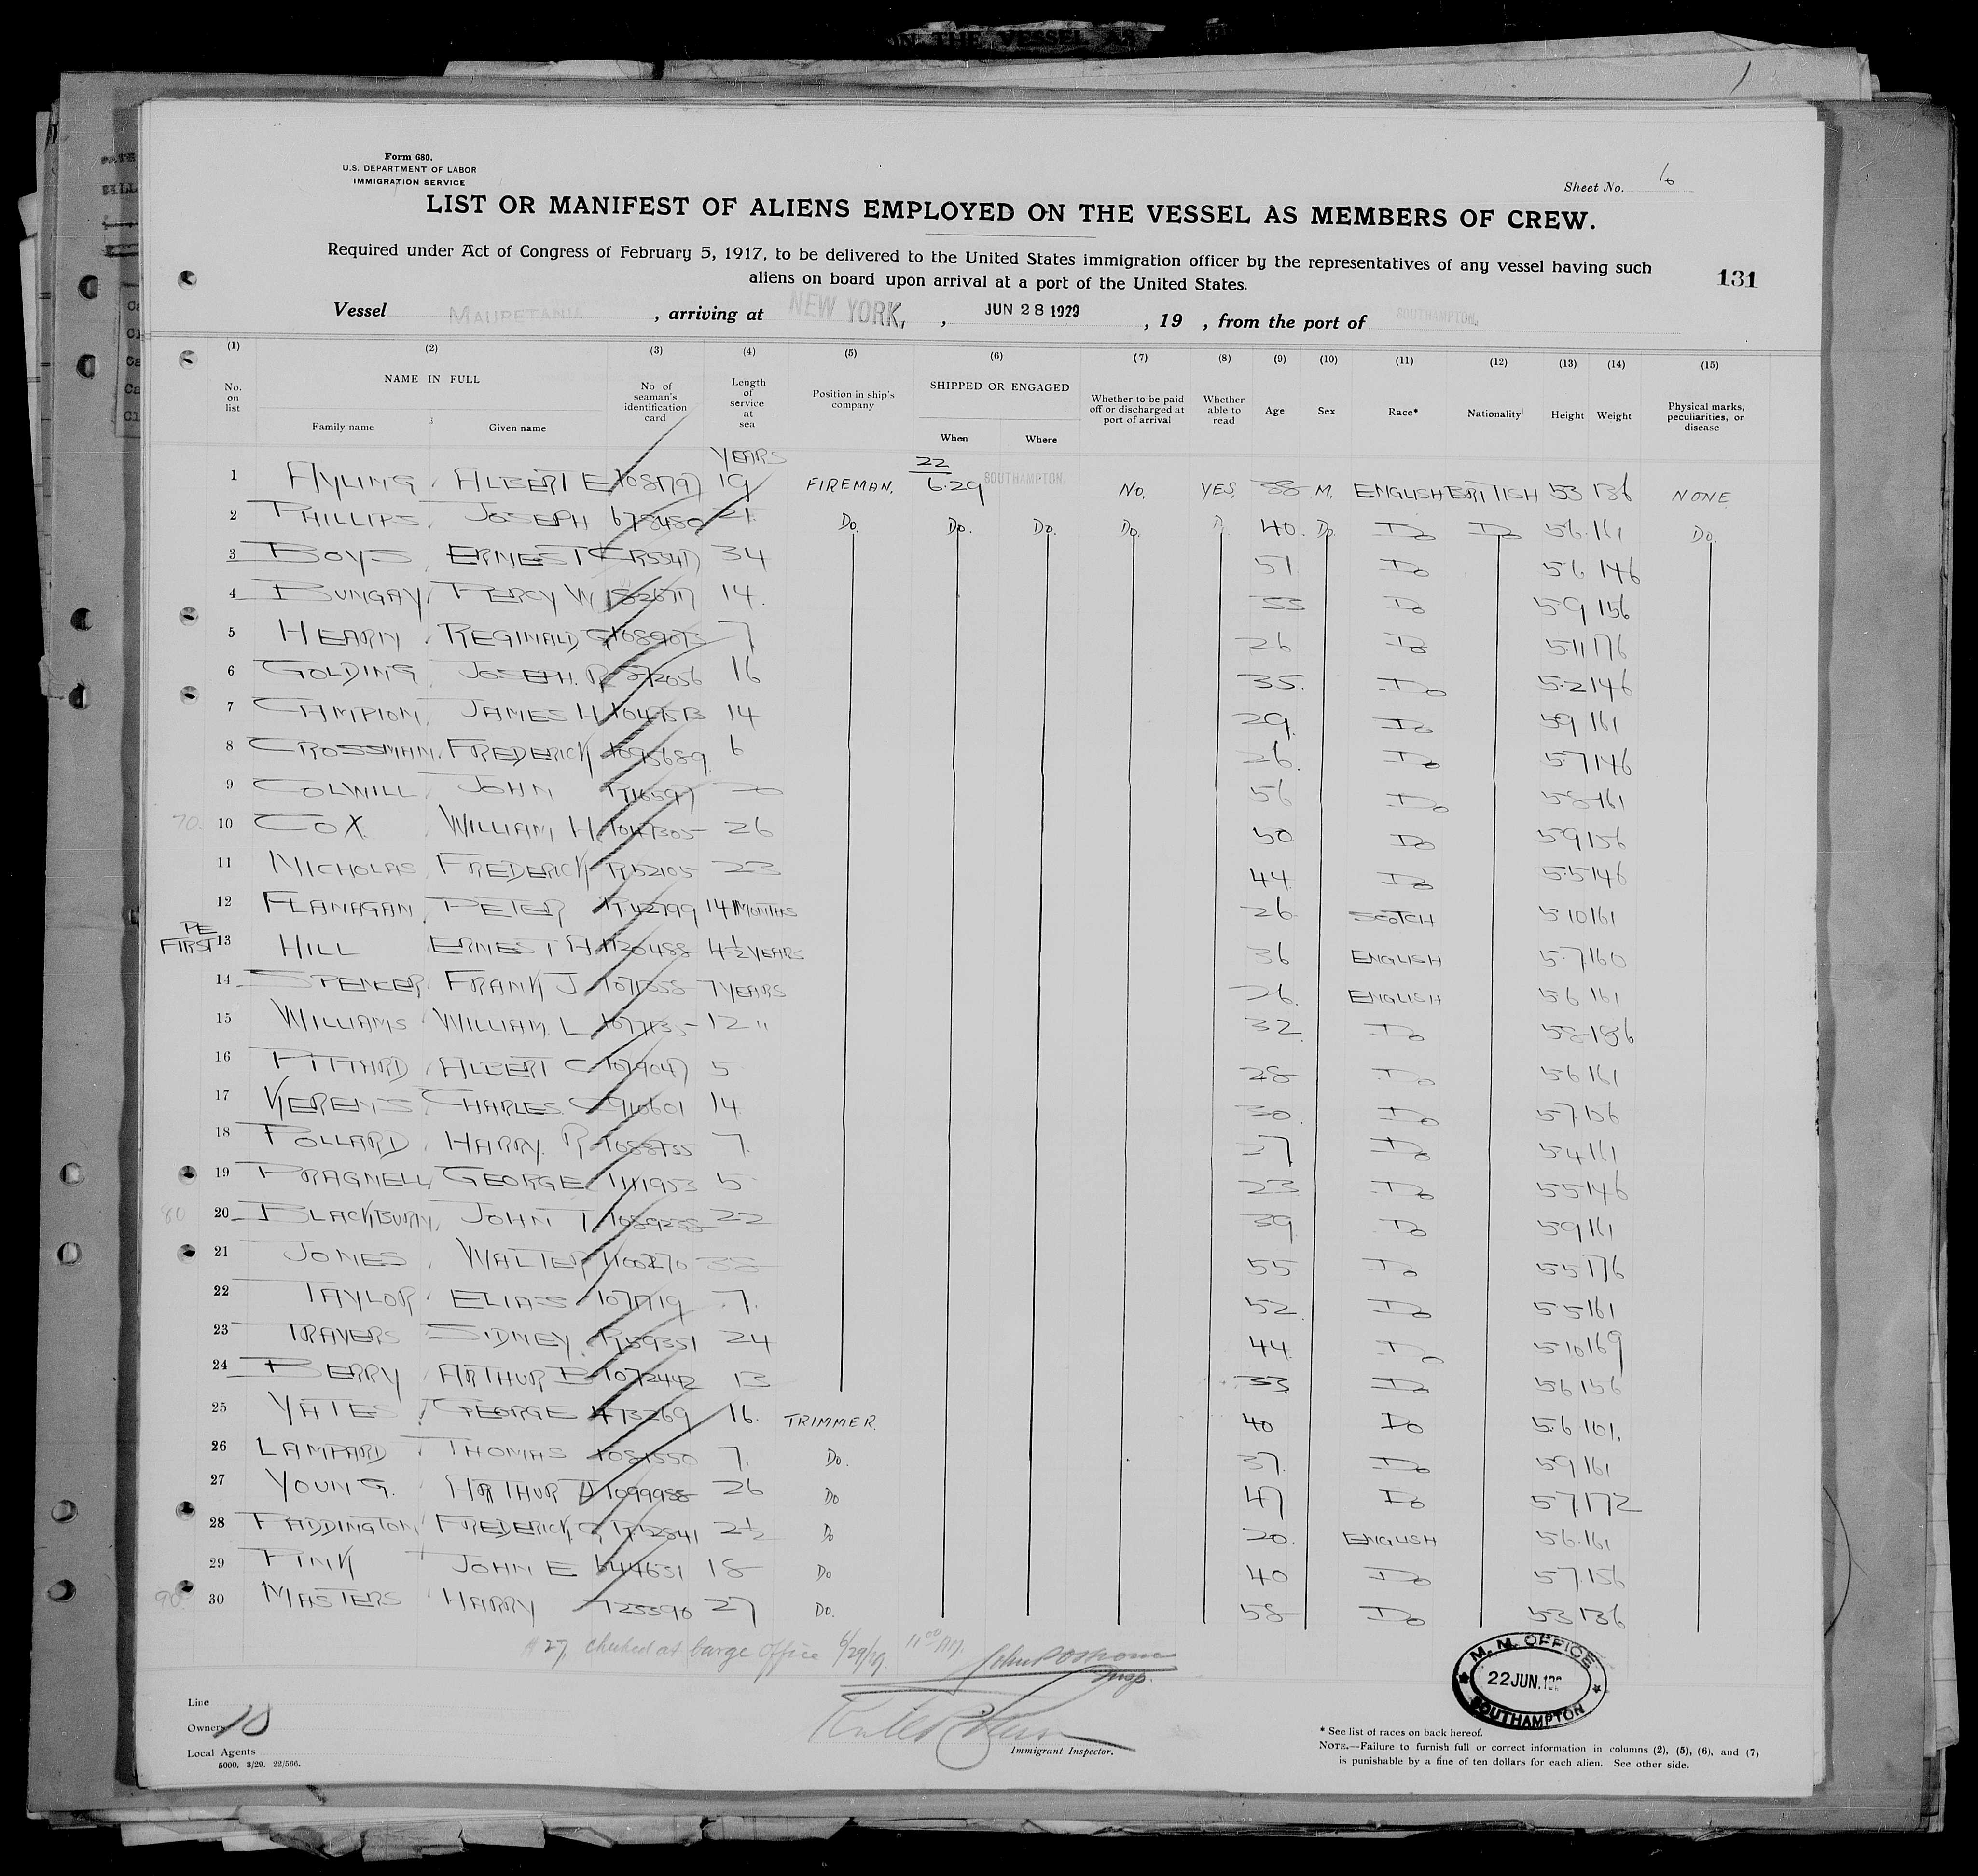 Form 680.
U.S. DEPARTMENT OF LABOR
IMMIGRATION SERVICE
Sheet No. 6
LIST OR MANIFEST OF ALIENS EMPLOYED ON THE VESSEL AS MEMBERS OF CREW.
Required under Act of Congress of February 5, 1917, to be delivered to the United States immigration officer by the representatives of any vessel having such
aliens on board upon arrival at a port of the United States.
131
Vessel MAURETANIA , arriving at NEW YORK, , JUN 28 1929 , 19 , from the port of SOUTHAMPTON.
(1) (2) (3) (4) (5) (6) (7) (8) (9) (10) (11) (12) (13) (14) (15)
No. on list NAME IN FULL Family name Given name No of seaman's identification card Length of service at sea Position in ship's company SHIPPED OR ENGAGED When Where Whether to be paid off or discharged at port of arrival Whether able to read Age Sex Race* Nationality Height Weight Physical marks, peculiarities, or disease
YEARS
1 AYLING, ALBERT E 19 FIREMAN, 22 6.29 SOUTHAMPTON. No. YES, 38 M. ENGLISH BRITISH 53 136 NONE
2 PHILLIPS, JOSEPH 678480 21 Do. Do. Do. Do. 40. Do. Do Do 56 161 Do.
3 BOYS, ERNEST C 34 51 Do 5.6 146
4 BUNGAY, PERCY W 14. 33 Do 59 156
5 HEARN, REGINALD G 7 26 Do 5.11 176
6 GOLDING, JOSEPH. R 16 35. Do 5.2 146
7 CHAMPION, JAMES H 14 29 Do 59 161
8 CROSSMAN, FREDERICK 1095689 6 26. Do 5.7 146
9 COLWILL, JOHN 56 Do 58 161
70. 10 COX. WILLIAM H. 1047305 26 50 Do 59 156
11 NICHOLAS FREDERICK R52105 23 44 Do 5.5 146
12 FLANAGAN, PETER 14 MONTHS 26 SCOTCH 5 10 161
PE FIRST 13 HILL ERNEST A 1120488 4½ YEARS 36 ENGLISH 5.7 160
14 SPENCER, FRANK J. 7 YEARS 26. ENGLISH 56 161
15 WILLIAMS WILLIAM L 12 " 32 Do 58 186
16 PITTARD, ALBERT C 1079047 5 28 Do 56 161
17 KERENS, CHARLES. C 910601 14 30 Do 57 156
18 POLLARD, HARRY. R 1088735 7. 37 Do 54 161
19 PRAGNELL, GEORGE 1111953 5 23 Do 55 146
80 20 BLACKBURN, JOHN T. 22 39 Do 59 161
21 JONES, WALTER 1100270 38 55 Do 55 176
22 TAYLOR, ELIAS 7. 52 Do 5.5 161
23 TRAVERS SIDNEY. R59351 24 44 Do 5 10 169
24 BERRY ARTHUR B 1072442 13 33 Do 56 156
25 YATES, GEORGE 473269 16. TRIMMER. 40 Do 5.6 161.
26 LAMPARD THOMAS 7. Do. 37. Do 59 161
27 YOUNG. ARTHUR D 1099988 26 Do 47 Do 57 172
28 PADDINGTON, FREDERICK G 2½ Do 20. ENGLISH 56 161
29 PINK JOHN E 644651 18 Do 40 Do 57 156
90. 30 MASTERS HARRY 27 Do. 58 Do 53 136
# 27, checked at barge office 6/29/19. 11 00 AM. Insp.
M. M. OFFICE
22 JUN.
SOUTHAMPTON
Line
Owners 10
Local Agents
5000. 3/29. 22/566.
Immigrant Inspector.
* See list of races on back hereof.
NOTE.—Failure to furnish full or correct information in columns (2), (5), (6), and (7,
is punishable by a fine of ten dollars for each alien. See other side.